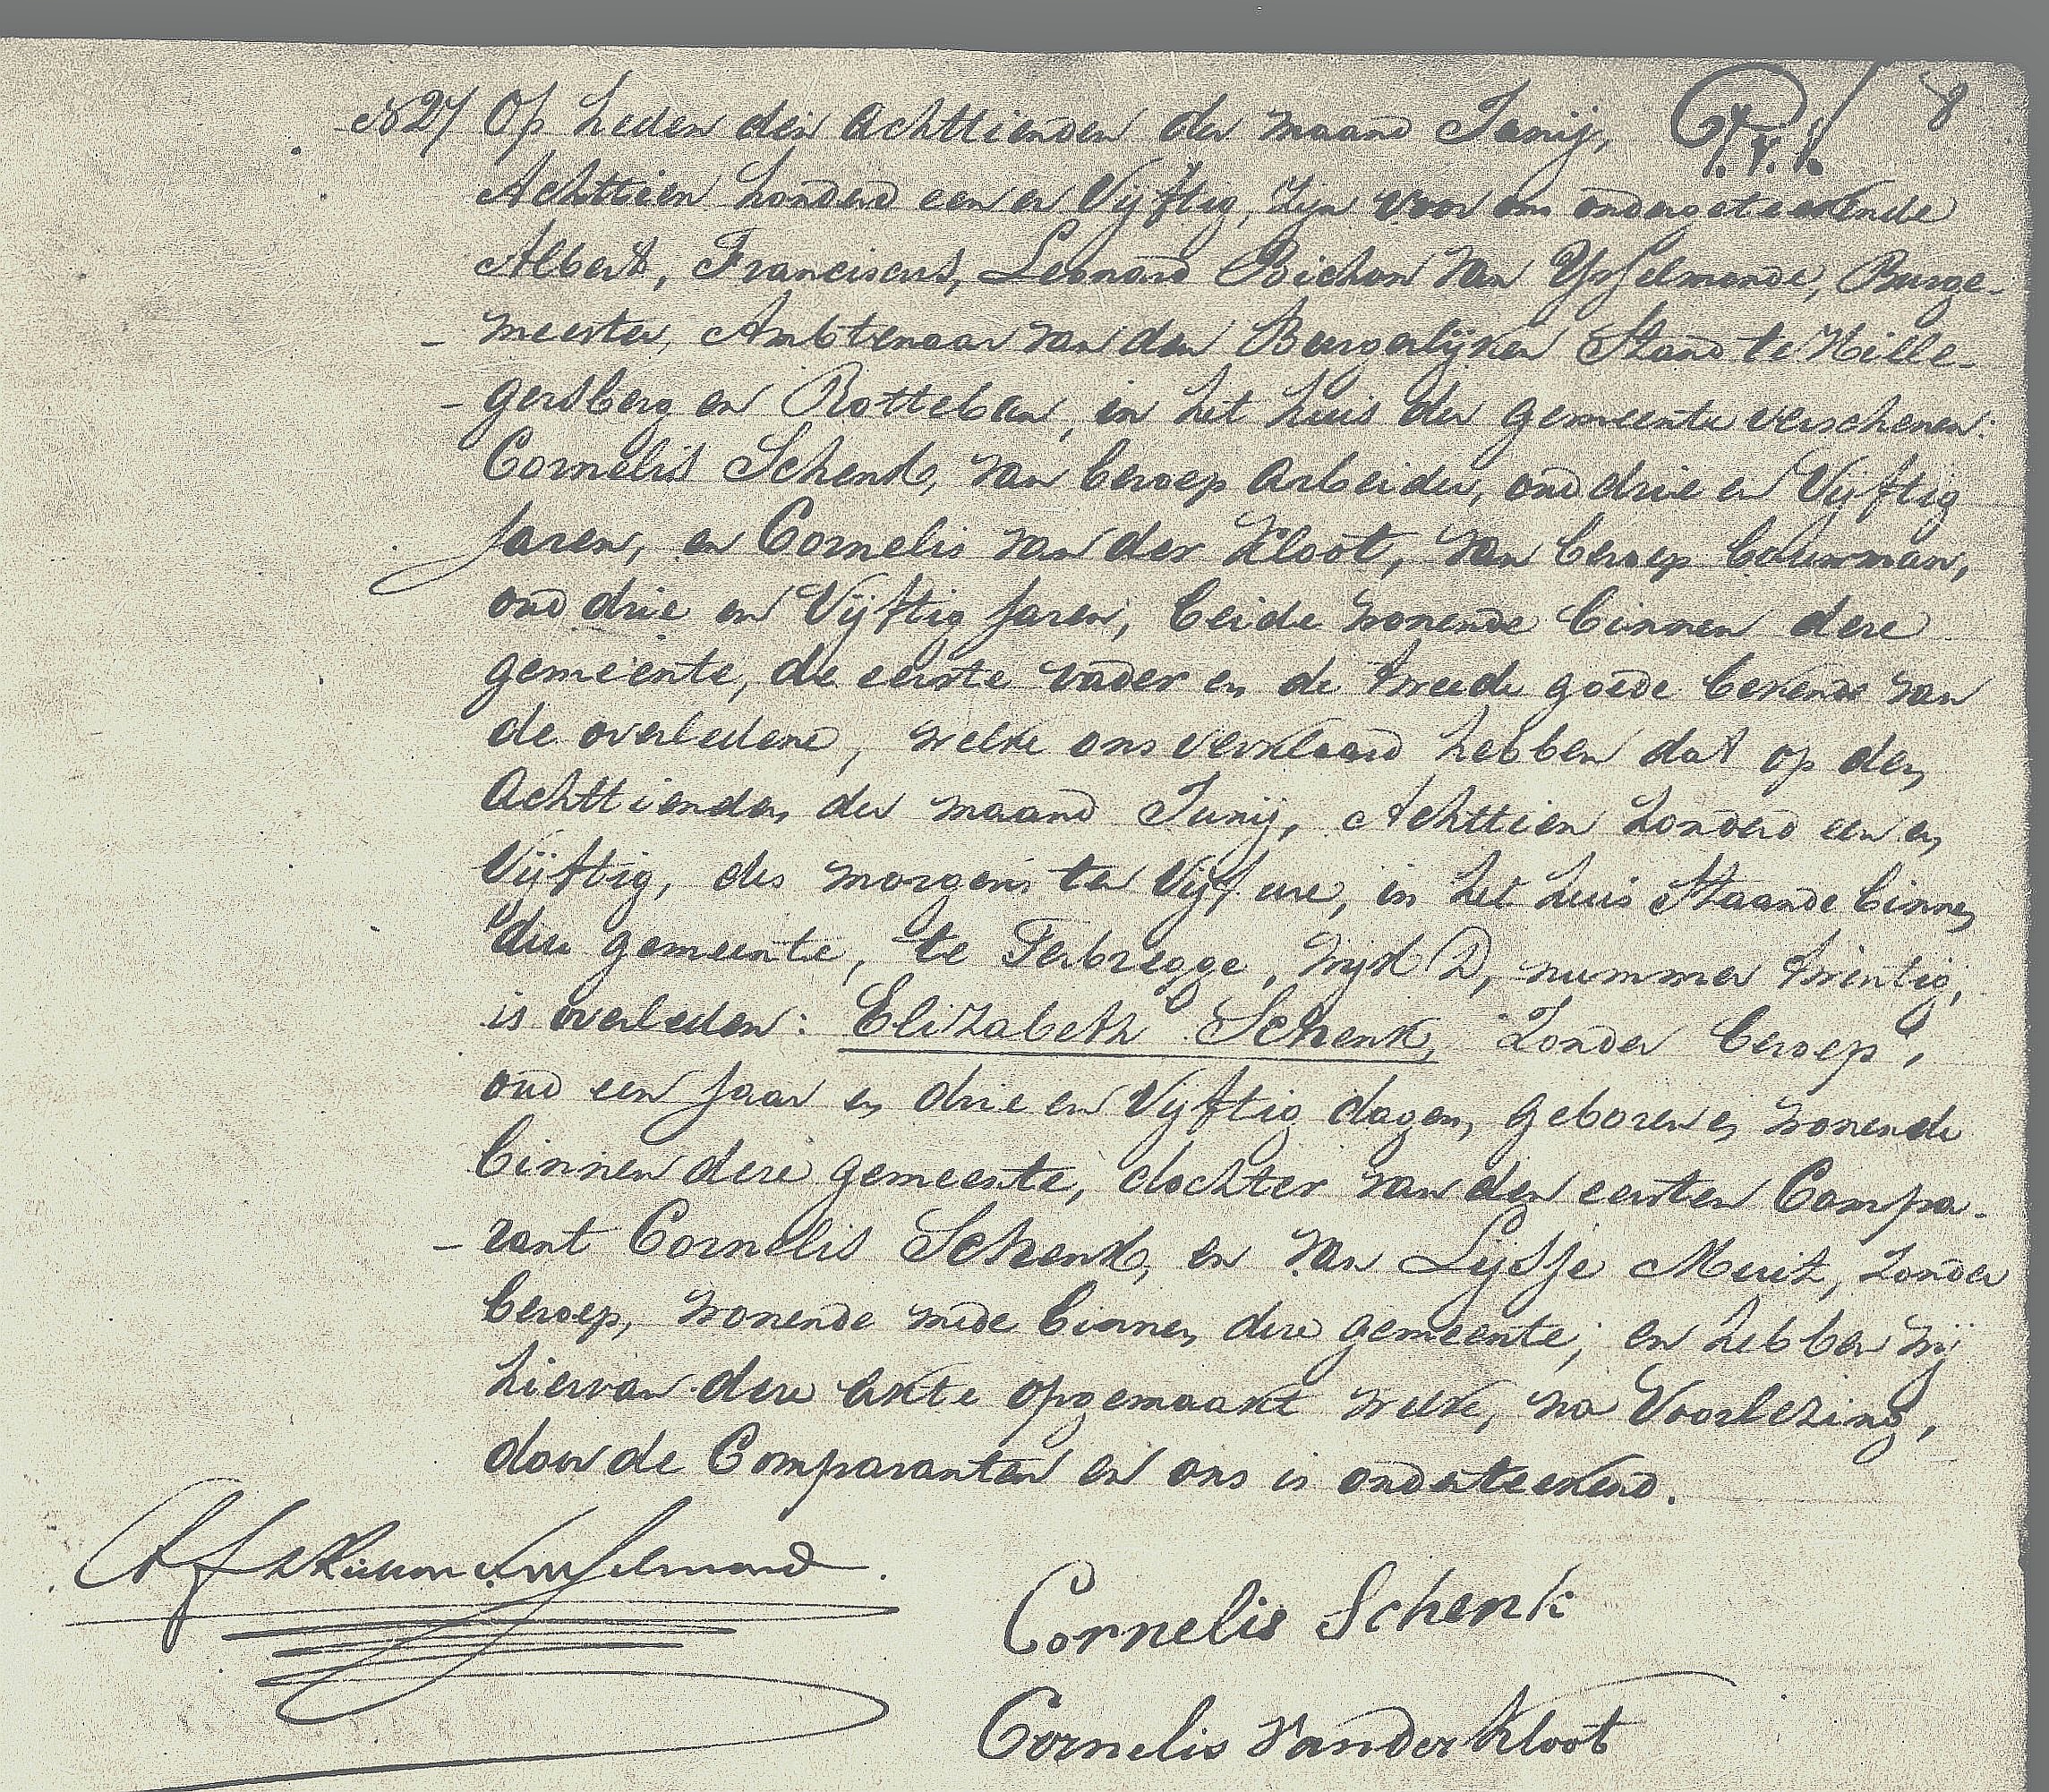 N 27 Op heden den Achttienden der maand Junij, 8
Achttien honderd een en Vijftig, zijn voor ons ondergeteekende
Albert, Franciscus, Leonard Bichon van Ysselmonde, Burge-
meester, Ambtenaar van den Burgerlijken Stand te Hille-
gersberg en Rotteban, in het huis der gemeente verschenen:
Cornelis Schenk, van beroep Arbeider, oud drie en Vijftig
Jaren, en Cornelis van der Kloot, van beroep bouwman,
oud drie en Vijftig Jaren, beide wonende binnen deze
gemeente, de eerste vader en de tweede goede bekende van
de overledene, welke ons verklaard hebben dat op den
Achttienden der maand Junij, Achttien honderd een en
Vijftig, des morgens ten Vijf ure, in het huis Staande binnen
deze gemeente, te Terbregge, Wijk D, nummer twintig,
is overleden: Elizabeth Schenk, zonder beroep,
oud een Jaar en drie en Vijftig dagen, geboren en wonende
binnen deze gemeente, dochter van den eersten Compa-
rant Cornelis Schenk, en van Lijsje Muit, zonder
beroep, wonende mede binnen deze gemeente; en hebben wij
hiervan deze akte opgemaakt welke, na Voorlezing,
door de Comparanten en ons is onderteekend.
Cornelis Schenk
Cornelis Vander Kloot